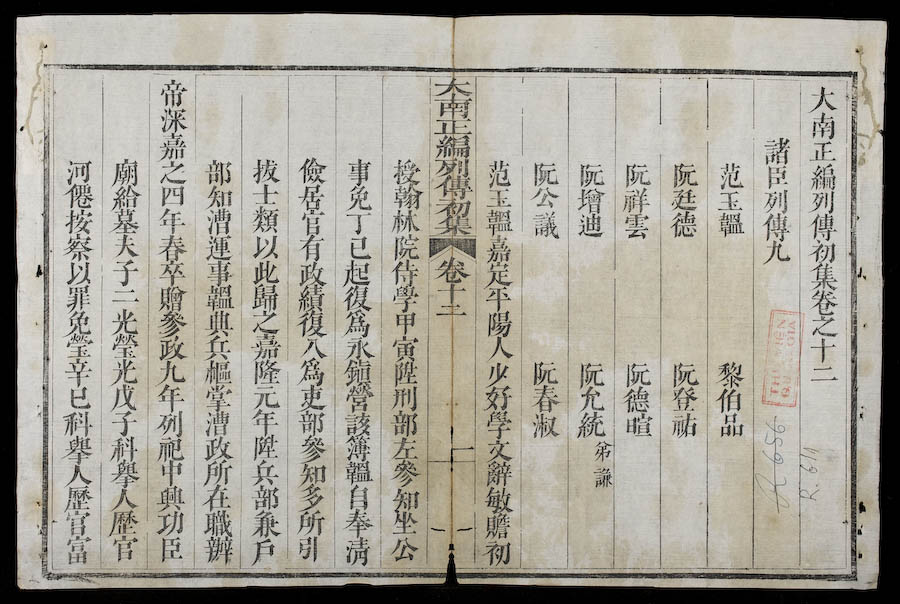 大南正編列傳初集卷之十二
諸臣列傳九
范玉韞　黎伯品
阮廷德　阮登祐
阮祥雲　阮德暄
阮增迪　阮允統 弟謙
阮公議　阮春淑
范玉韞嘉定平陽人少好學文辭敏贍初
大南正編列傳初集　卷十二　一
授翰林院侍學甲寅陞刑部左參知坐公
事免丁巳起復爲永鎮營該簿韞自奉清
儉居官有政績復入爲吏部參知多所引
拔士類以此歸之嘉隆元年陞兵部兼戶
部知漕運事韞典兵樞掌漕政所在職辦
帝深嘉之四年春卒贈參政九年列祀中興功臣
廟給墓夫子二光瑩光戊子科舉人歷官
河僊按察以罪免瑩辛巳科舉人歷官富
R 656
R.611